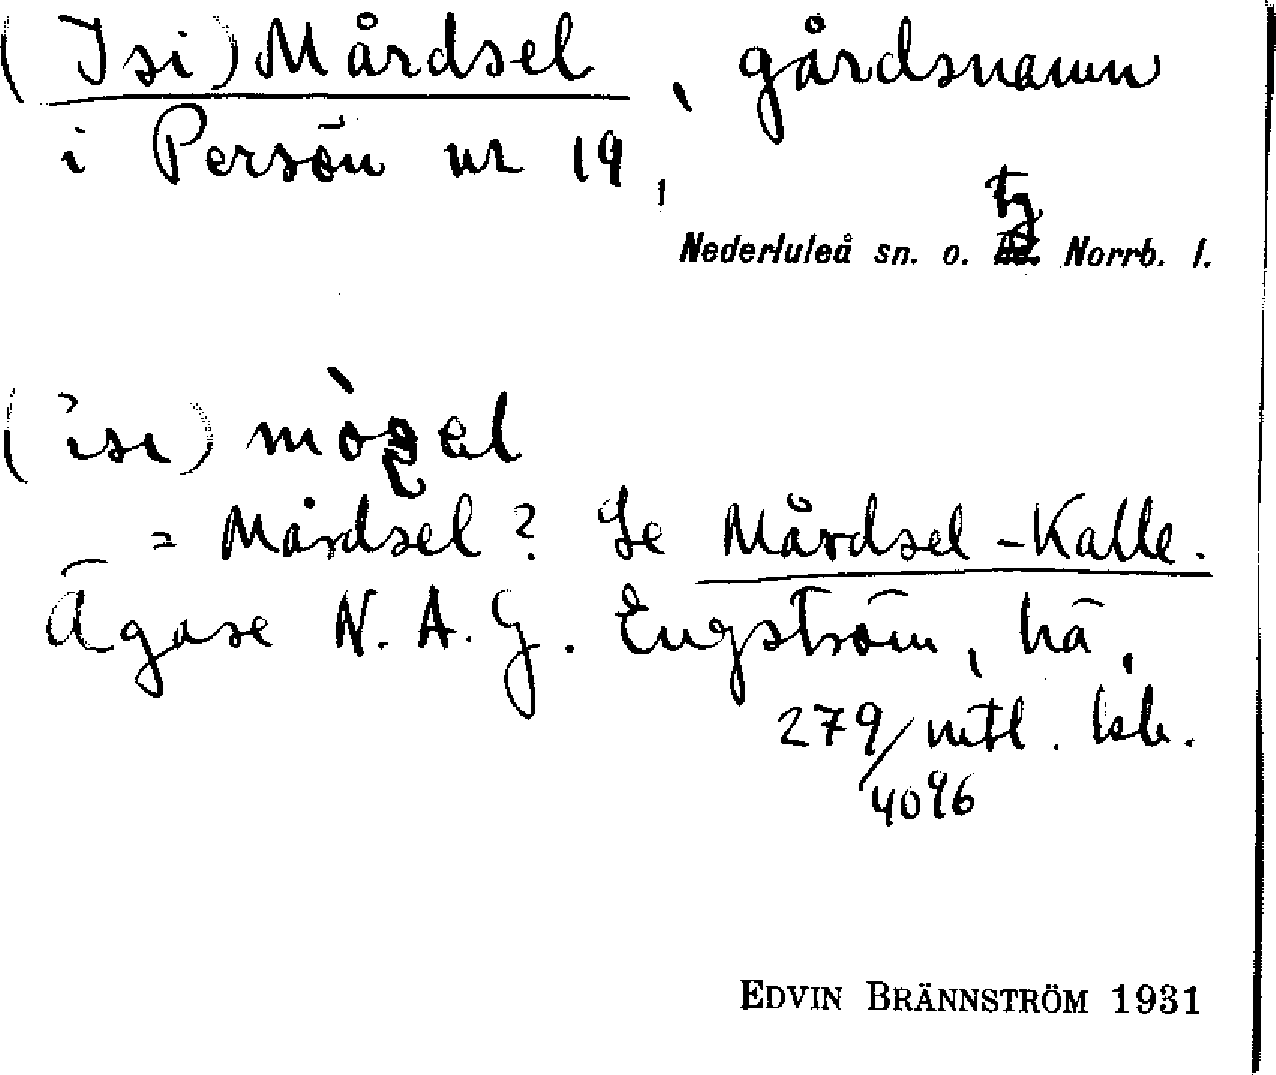 (Isi)Mårdsel, gårdsnamn
i Persön nr 19,
tg
Nederluleå sn. o. Norrb. l.
= Mårdsel? Se Mårdsel-Kalle.
Ägare N. A. G. Engström, hä,
279/4096 mtl. lsk.
EDVIN BRÄNNSTRÖM 1931